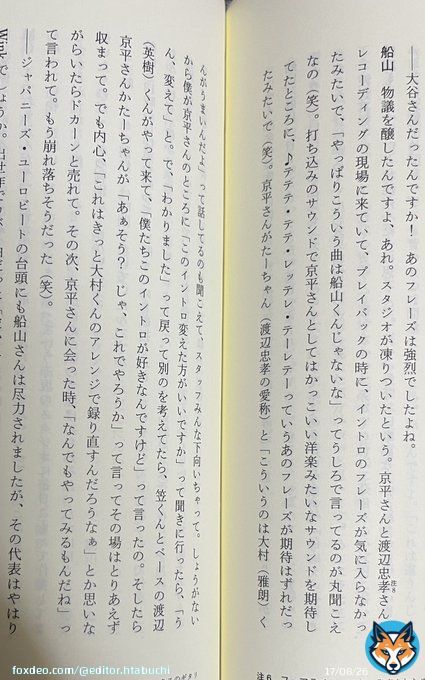 ――大谷さんだったんですか! あのフレーズは強烈でしたよね。
船山 物議を醸したんですよ、あれ。スタジオが凍りついたという。京平さんと渡辺忠孝さん
注8
レコーディングの現場に来ていて、プレイバックの時に、イントロのフレーズが気に入らなかっ
たみたいで、「やっぱりこういう曲は船山くんじゃないな」ってうしろで言ってるのが丸聞こえ
なの(笑)。打ち込みのサウンドで京平さんとしてはかっこいい洋楽みたいなサウンドを期待し
てたところに、♪テテテ・テテ・レッテレ・テーレテーっていうあのフレーズが期待はずれだっ
たみたいで(笑)。京平さんがたーちゃん(渡辺忠孝の愛称)と「こういうのは大村(雅朗)く
んがうまいんだよ」って話してるのも聞こえて、スタッフみんな下向いちゃって。しょうがない
から僕が京平さんのところに「このイントロ変えた方がいいですか」って聞きに行ったら、「う
ん、変えて」と。で、「わかりました」って戻って別のを考えてたら、笠くんとベースの渡辺
(英樹)くんがやって来て、「僕たちこのイントロが好きなんですけど」って言ったの。そしたら
京平さんかたーちゃんが「あぁそう? じゃ、これでやろうか」って言ってその場はとりあえず
収まって。でも内心、「これはきっと大村くんのアレンジで録り直すんだろうなぁ」とか思いな
がらいたらドカーンと売れて。その次、京平さんに会った時、「なんでもやってみるもんだね」っ
て言われて。もう崩れ落ちそうだった(笑)。
――ジャパニーズ・ユーロビートの台頭にも船山さんは尽力されましたが、その代表はやはり
注6
foxdeo.com/@editor.htabuchi
17/08/26